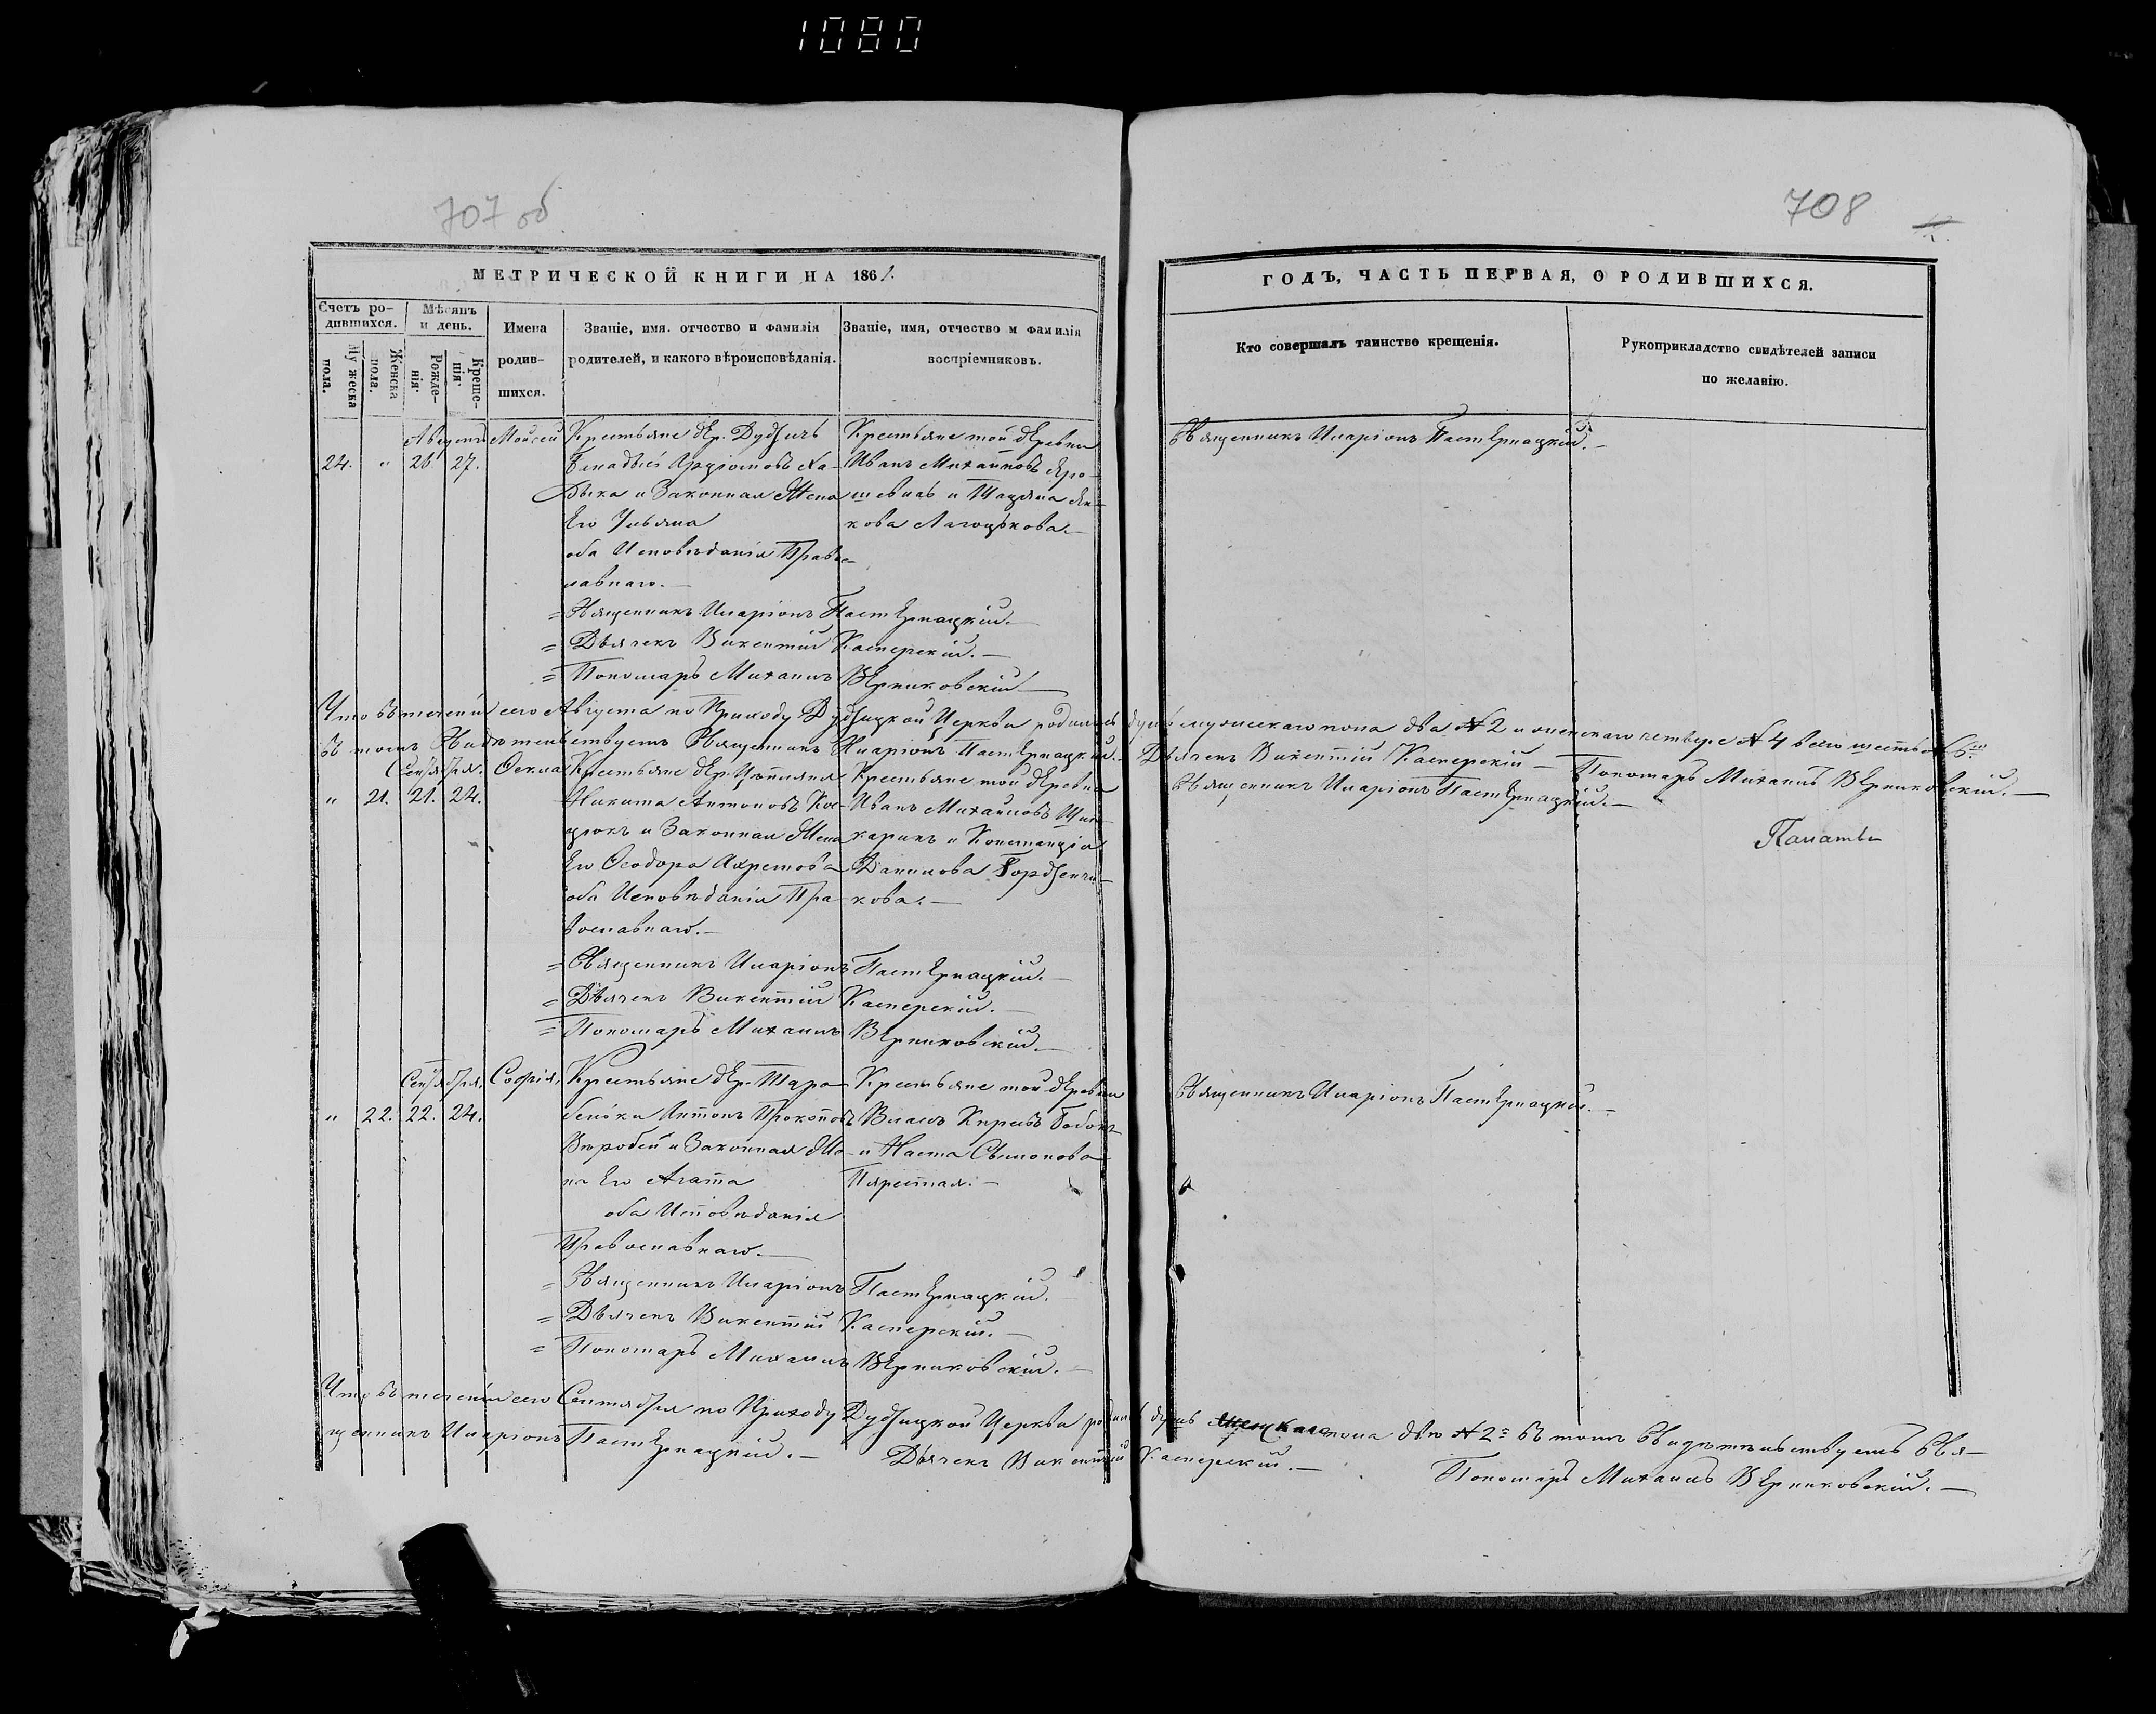 1080
707 об
708
МЕТРИЧЕСКОЙ КНИГИ НА 1861.
Счетъ ро-
дившихся.
Мѣсяцъ
и день.
Мужеска
пола.
Женска
пола.
Рожде-
нія.
Креще-
нія.
Имена
родив-
шихся.
Званіе, имя. отчество и фамилія
родителей, и какого вѣроисповѣданія.
Званіе, имя, отчество и фамилія
воспріемниковъ.
ГОДЪ, ЧАСТЬ ПЕРВАЯ, О РОДИВШИХСЯ.
Кто совершалъ таинство крещенія.
Рукоприкладство свидѣтелей записи
по желанію.
Августъ
24. " 26 27.
Мойсей
Крестьяне дер. Дудзичъ
и Законная Жена
Его Ульяна
оба Исповѣданія Право-
лавнаго.
Крестьяне той деревни
Иванъ Михайловъ Яро-
шевичъ и Тацяна Яко-
кова
Священникъ Иларіонъ Пастернацкій.
= Священникъ Иларіонъ Пастернацкій.
= Дьячекъ Викентій Касперскій.
= Пономарь Михаилъ Верниковскій
Что въ теченіи сего Августа по Приходу Дудзицкой Церкви родилось душъ мужескаго пола два N 2 и женскаго четыре N 4 всего шесть N 6
въ томъ Свидѣтельствуетъ Священникъ Иларіонъ Пастернацкій. Дьячекъ Викентій Касперскій Пономарь Михаилъ Верниковскій.
Сентября.
" 21. 21. 24.
Өекла
Крестьяне дер. Цѣпляня
Никита Антоновъ Кос-
цюкъ и Законная Жена
Его Өеодора
оба Исповѣданія Пра-
вославнаго.
Крестьяне той деревни
Иванъ Михайловъ
и Констанція
Данилова
кова.
Священникъ Иларіонъ Пастернацкій.
= Священникъ Иларіонъ Пастернацкій.
= Дьячекъ Викентій Касперскій.
= Пономарь Михаилъ Верниковскій.
Сентября.
" 22. 22. 24.
Софія.
Крестьяне дер. Тара-
Антонъ Прокоповъ
Воробей и Законная Же-
на Его Агата
оба Исповѣданія
Православнаго.
Крестьяне той деревни
и Наста Сымонова
Священникъ Иларіонъ Пастернацкій.
= Священникъ Иларіонъ Пастернацкій.
= Дьячекъ Викентій Касперскій.
= Пономарь Михаилъ Верниковскій.
Что въ теченіи сего Сентября по Приходу Дудзицкой Церкви родилось душъ женскаго пола двѣ N 2 въ томъ Свидѣтельствуетъ Свя-
щенникъ Иларіонъ Пастернацкій. Дьячекъ Викентій Касперскій. Пономарь Михаилъ Верниковскій.